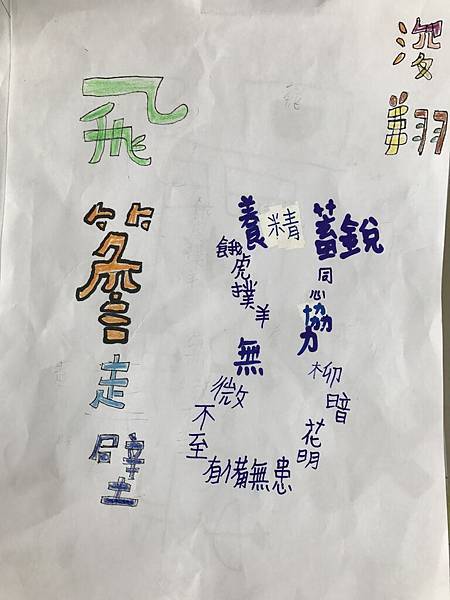 浚翔
飛簷走壁
養精蓄銳
同心協力
柳暗花明
餓虎撲羊
無微不至
有備無患